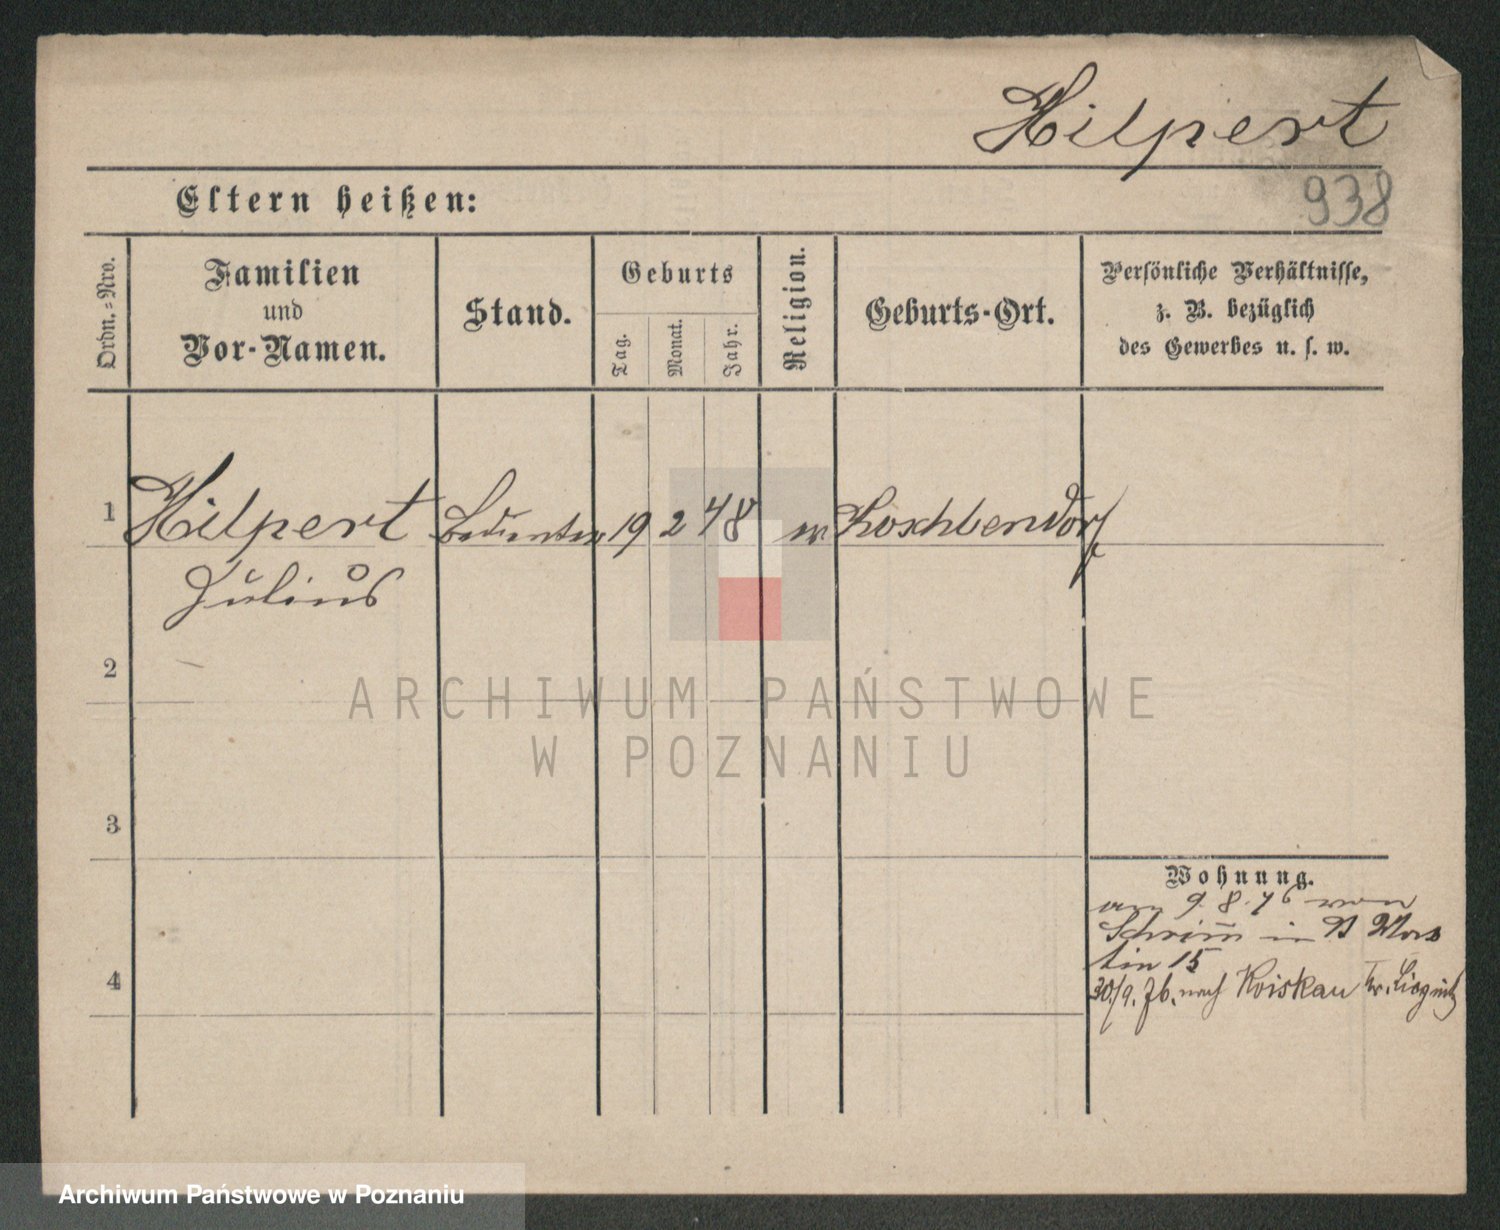 Hilpert
938
Eltern heißen:
Ordn.-Nro.
Familien
und
Vor-Namen.
Stand.
Geburts
Tag.
Monat.
Jahr.
Religion.
Geburts-Ort.
Persönliche Verhältnisse,
z. B. bezüglich
des Gewerbes u. s. w.
1 Hilpert 19 2 48 Koschbendorf
Julius
2
ARCHIWUM PAŃSTWOWE
W POZNANIU
3
Wohnung.
am 9. 8. 76 von
Schrimm in St Mar
tin 15
4
30./9. 76. nach Koiskau Kr. Liegnitz
Archiwum Państwowe w Poznaniu